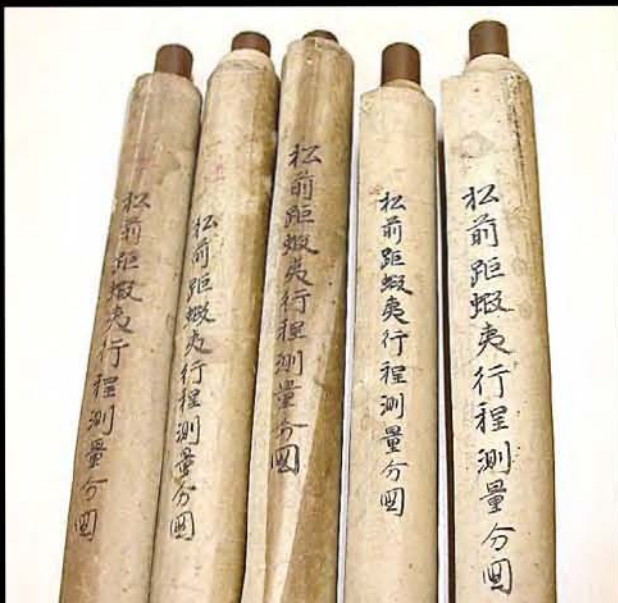 松前距蝦夷行程測量分図
松前距蝦夷行程測量分図
松前距蝦夷行程測量分図
松前距蝦夷行程測量分図
松前距蝦夷行程測量分図